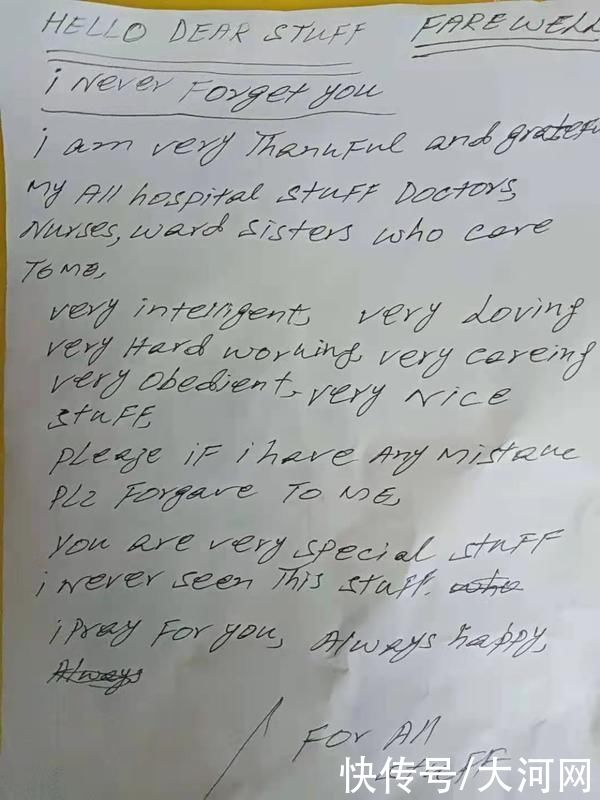 HELLO DEAR STUFF FAREWELL
i Never Forget you
i am very Thankful and grateful
My All hospital stuff Doctors,
Nurses, ward sisters who care
To Me,
very intelligent, very Loving
very Hard working, very careing
very Obedient, very Nice
stuff,
please if i have Any Mistake
plz Forgave To ME,
you are very special stuff
i never seen This stuff.
i pray For you, Always happy,
Always
For All
stuff
快传号/大河网